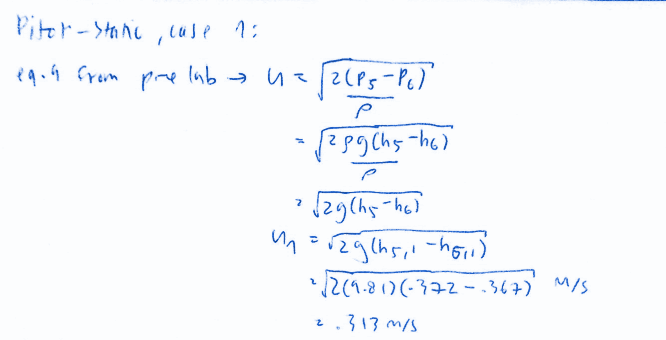 Pitot-Static, case 1:
eq.4 from pre lab → u = √(2(P5-P6)/ρ)
= √(2ρg(h5-h6)/ρ)
= √(2g(h5-h6))
u1 = √(2g(h5,1 - h6,1))
= √(2(9.81)(.372 - .367)) m/s
= .313 m/s